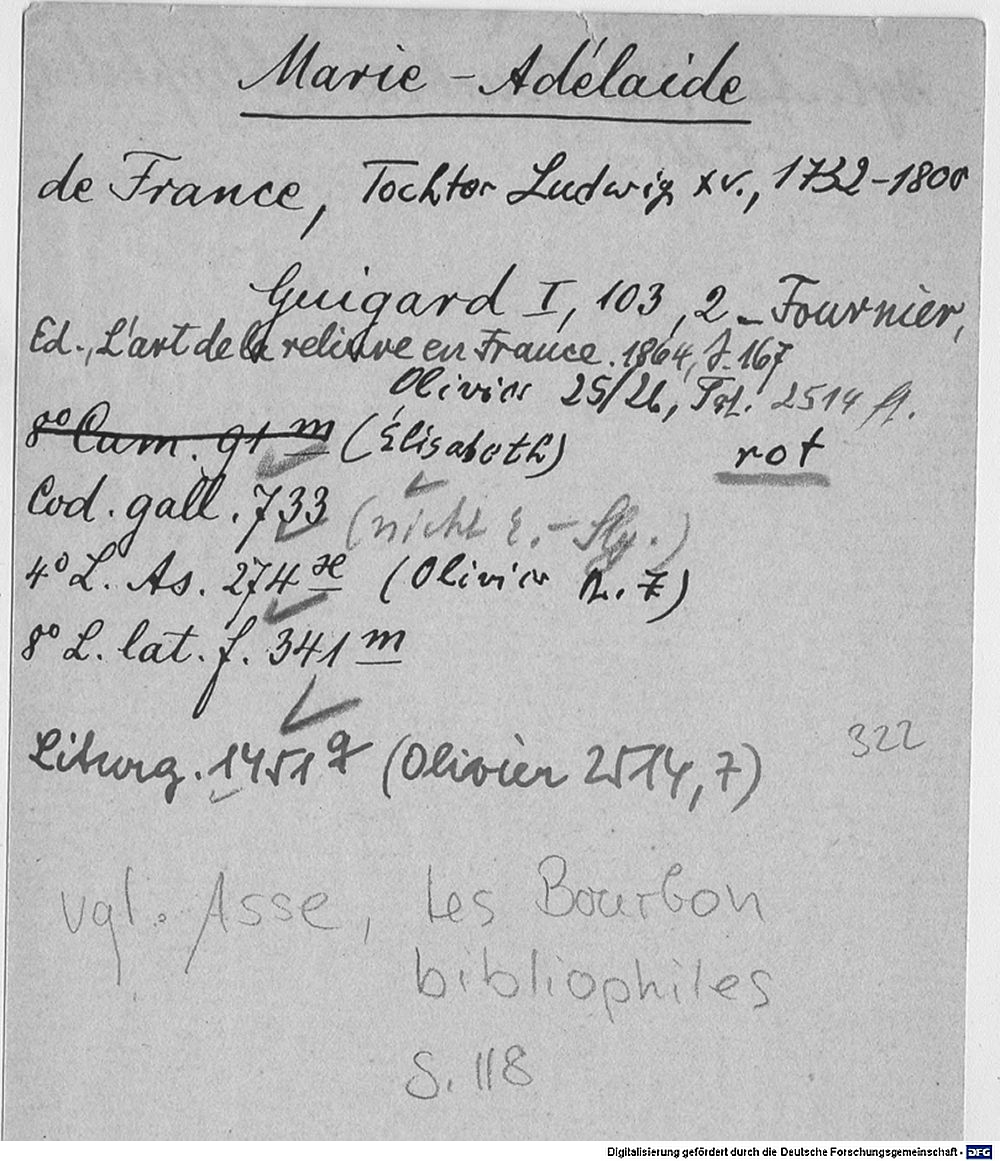 Marie-Adélaide
de France, Tochter Ludwig XV., 1732-1800
Guigard I, 103, 2 - Fournier,
Ed., L'art de la reliure en France. 1864, S. 167
Olivier 25/26, Taf. 2514 ff.
8° Cam. 91 m (Élisabeth) rot
Cod. gall. 733 (nicht E.-Slg.)
4° L. As. 274 x (Olivier n. 7)
8° L. lat. f. 341 m
322
Liturg. 1451 q (Olivier 2514, 7)
vgl. Asse, Les Bourbon
bibliophiles
S. 118
Digitalisierung gefördert durch die Deutsche Forschungsgemeinschaft - DFG